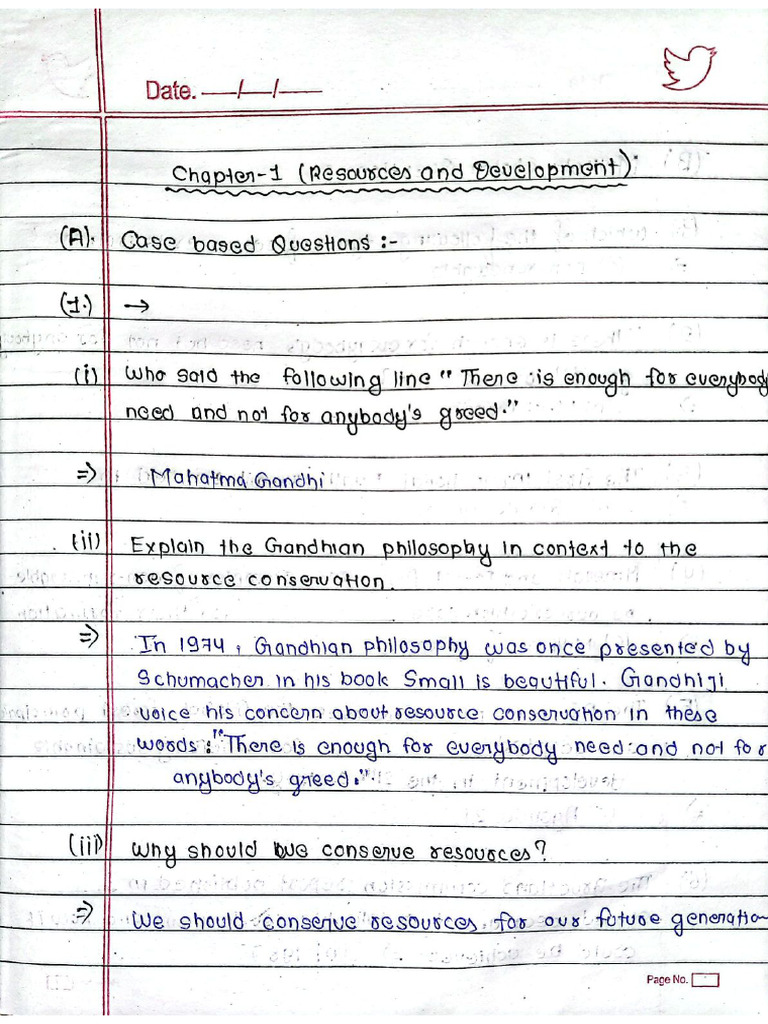 Date. —/—/——
Chapter-1 (Resources and Development):
(A). Case based Questions :-
(1.) →
(i) Who said the following line "There is enough for everybody
need and not for anybody's greed."
=> Mahatma Gandhi
(ii) Explain the Gandhian philosophy in context to the
resource conservation.
=> In 1974, Gandhian philosophy was once presented by
Schumacher in his book Small is beautiful. Gandhiji
voice his concern about resource conservation in these
words : "There is enough for everybody need and not for
anybody's greed."
(iii) Why should we conserve resources?
=> We should conserve resources for our future generation
Page No.